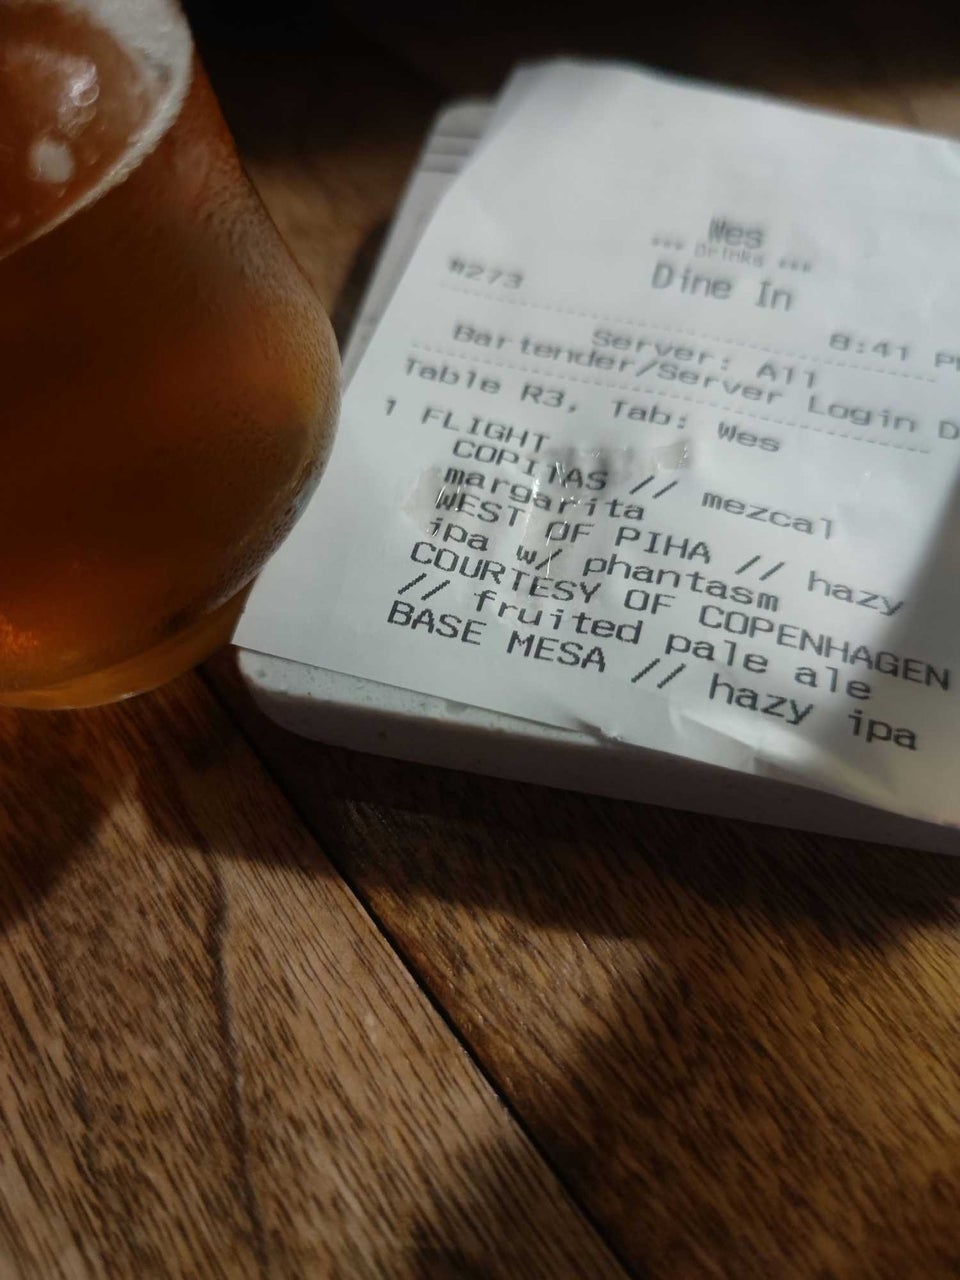 Wes
*** Drinks ***
Dine In
#273
8:41 PM
Server: All
Bartender/Server Login D
Table R3, Tab: Wes
1 FLIGHT
COPITAS // mezcal
margarita
WEST OF PIHA // hazy
ipa w/ phantasm
COURTESY OF COPENHAGEN
// fruited pale ale
BASE MESA // hazy ipa